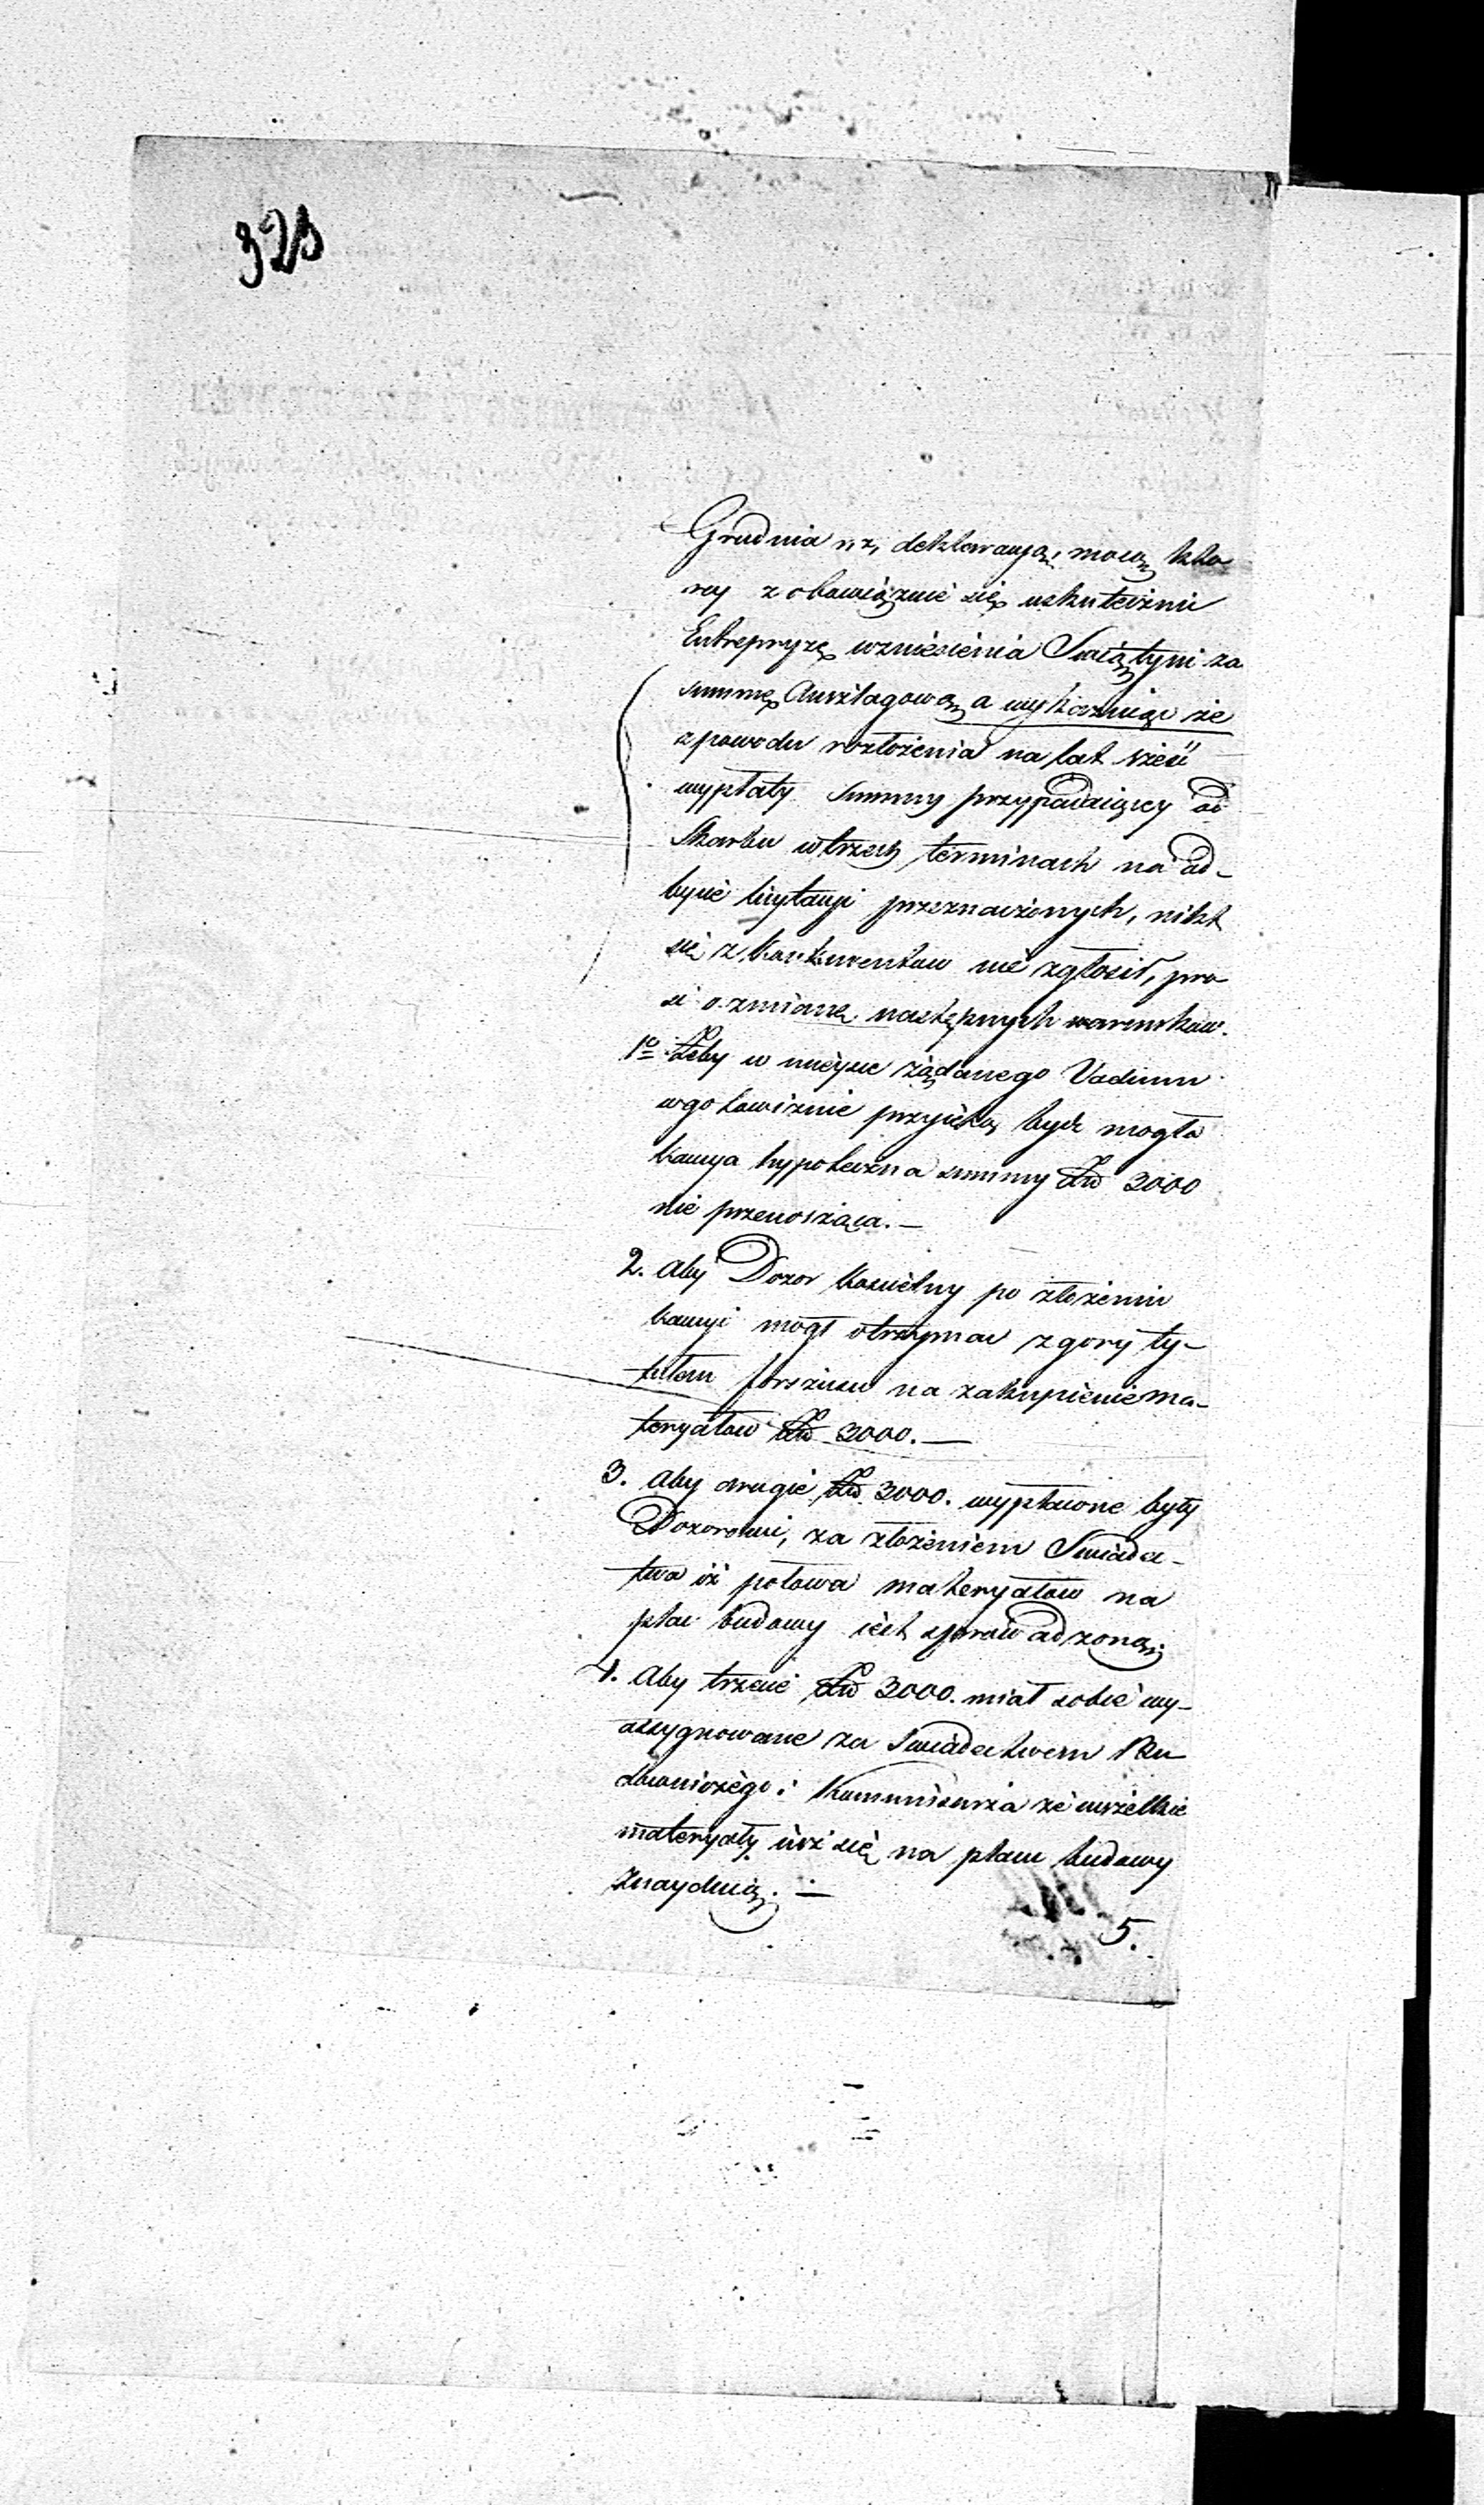 323
Grudnia r. z. deklaracyą, mocą któ
rey zobowiązuie się uskutecznić
Entrepryzę wzniesienia Swiątyni za
summę Anszlagową a wykazuiąc że
z powodu rozłożenia na lat sześć
wypłaty summy przypadaiącey od
Skarbu w trzech terminach na od-
bycie licytacyi przeznaczonych, nikt
się z konkurentow nie zgłosił, pro
si o zmianę następnych warunkow.
1o Żeby w mieysce żądanego Vadium
w gotowiznie przyiętą bydz mogła
kaucya hypoteczna summy Złp 3000
nie przenosząca. —
2. Aby Dozor kościelny po złożeniu
kaucyi mogł otrzymać z gory ty-
tułem forszusu na zakupienie ma-
teryałow Złp 3000. —
3. Aby drugie Złp 3000. wypłacone były
Dozorowi, za złożeniem Swiadec-
twa iż połowa materyałow na
plac budowy iest sprowadzoną.
4. Aby trzecie Złp 3000. miał sobie wy-
assygnowane za Swiadectwem Bu
downiczego i Kommissarza że wszelkie
materyały iuż się na placu budowy
znayduią. —
5.